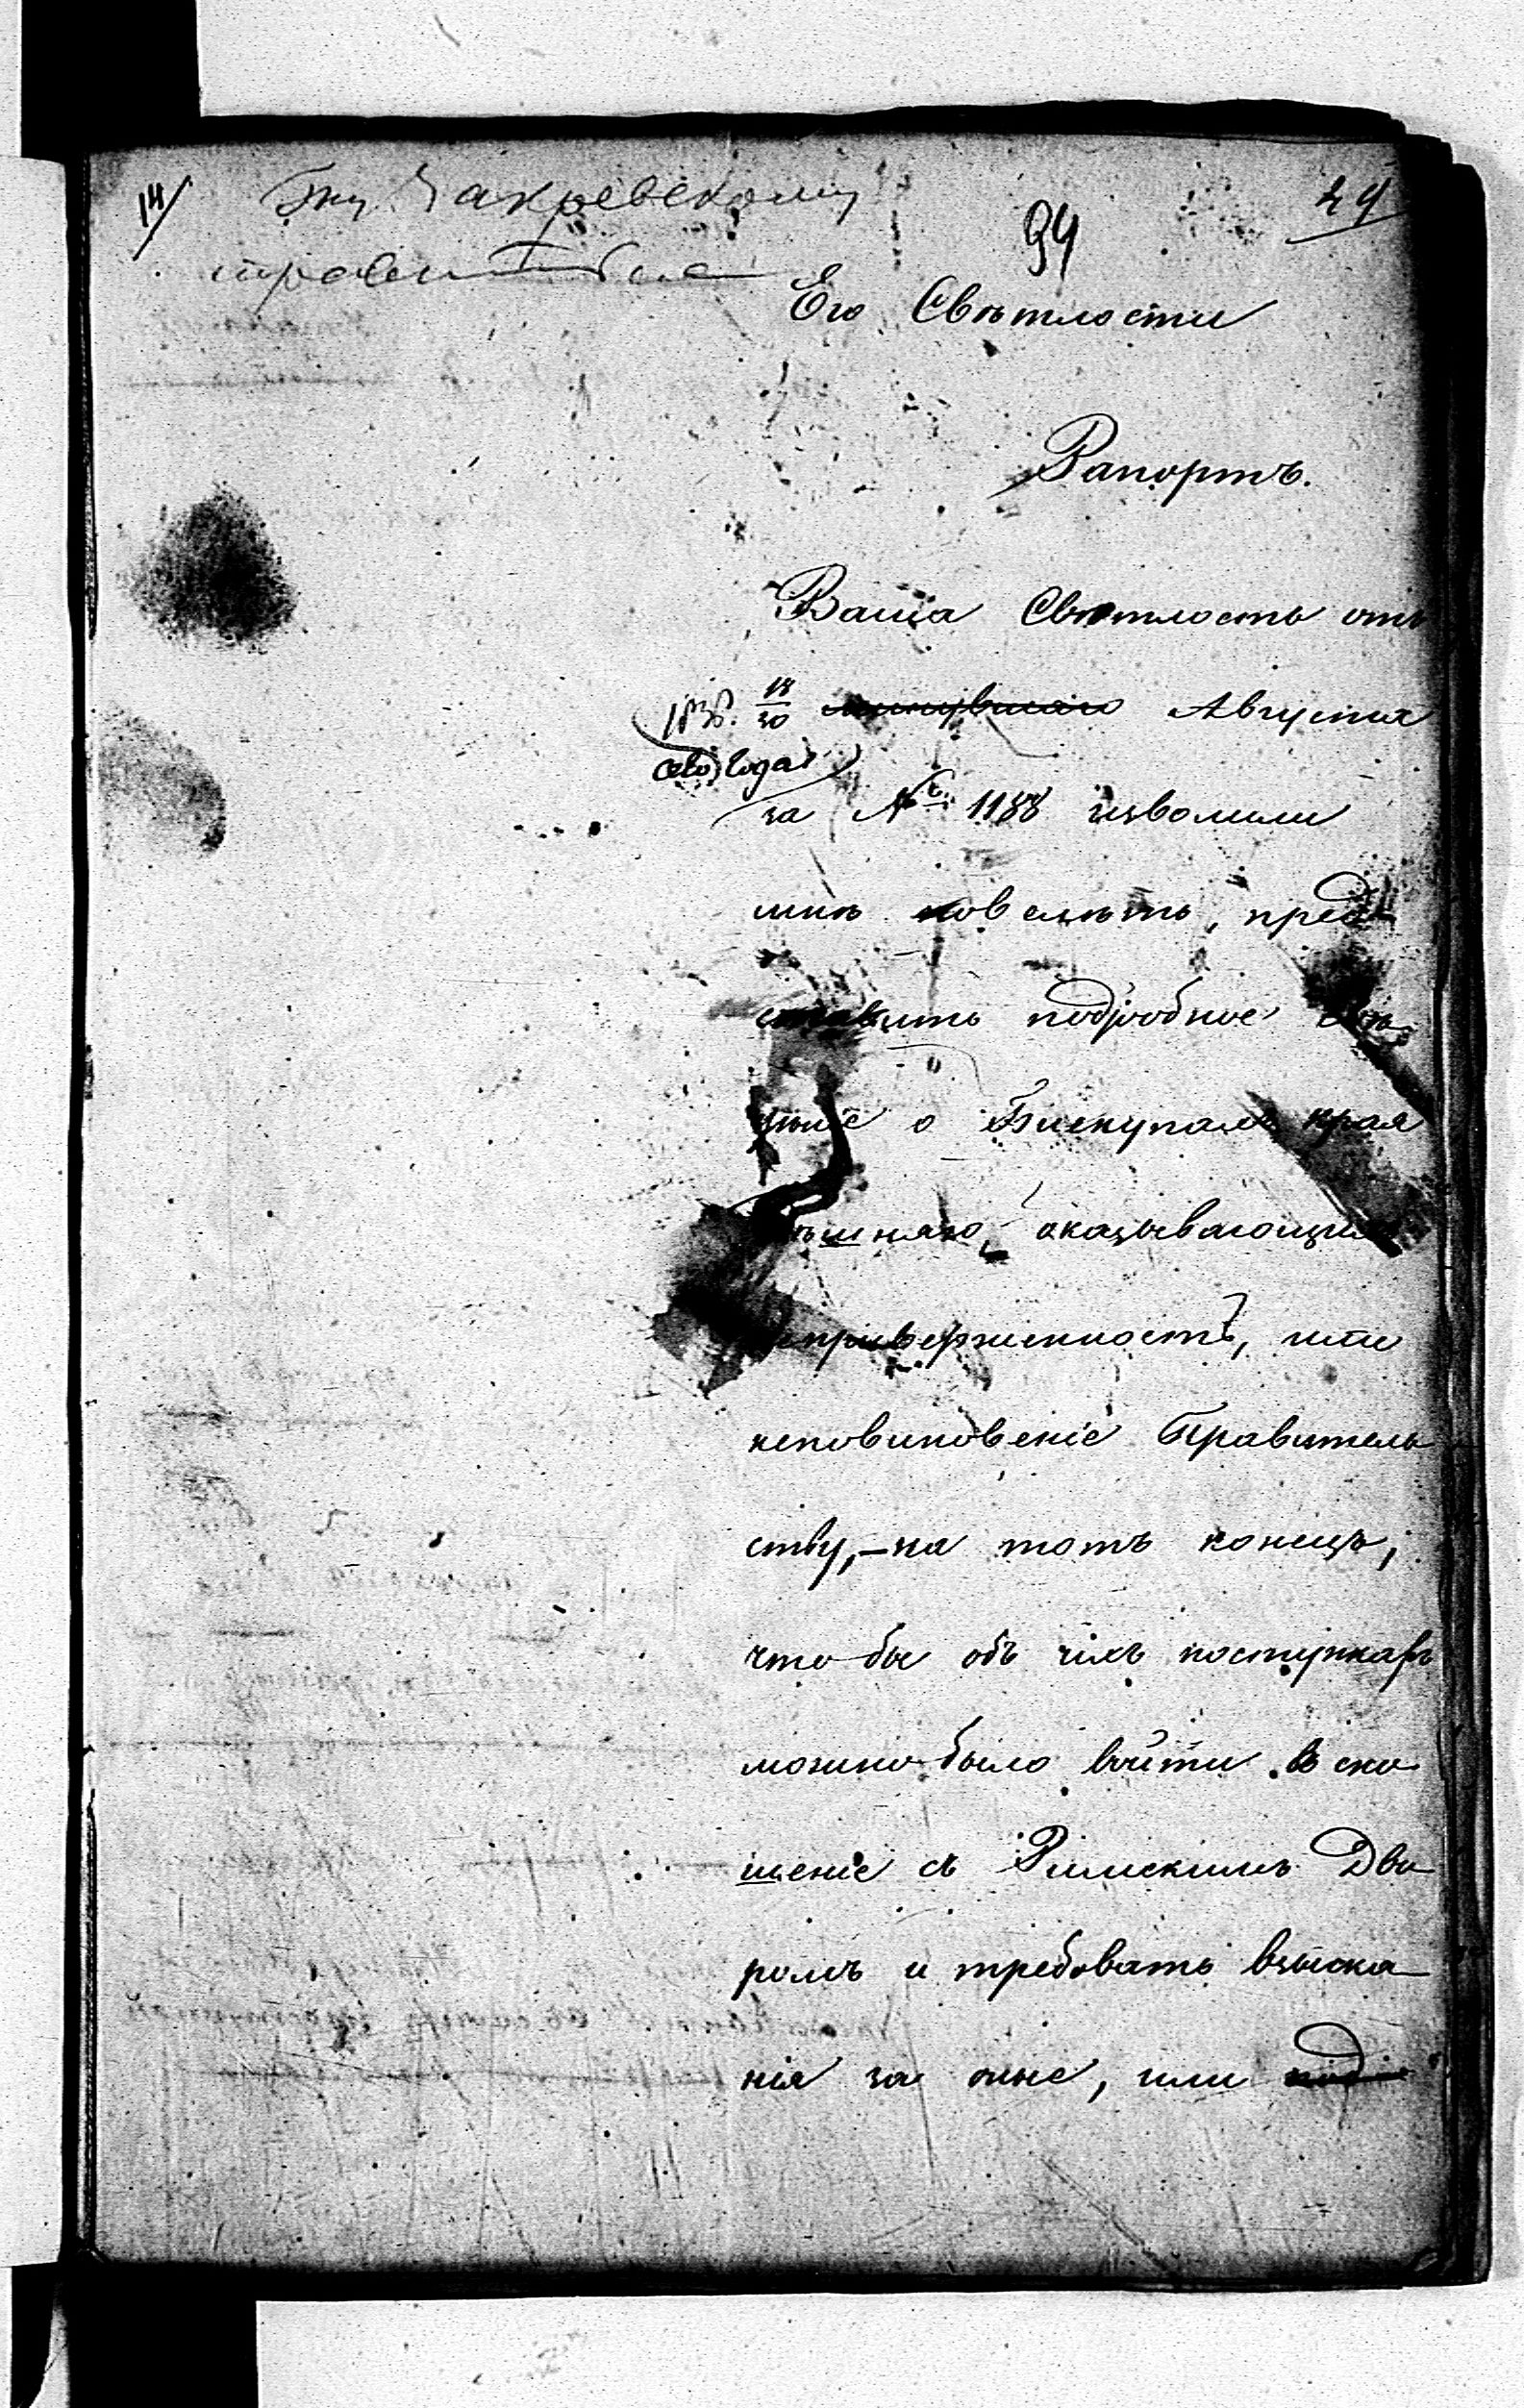 14/ Закревскому 29
94
Его Свѣтлости
Рапортъ.
Ваша Свѣтлость отъ
18/30 минувшаго Августа
сего года
за № 1188 изволили
мнѣ повелѣть, пред-
ставить подробное свѣ-
дѣніе о Бискупахъ края
здѣшняго, оказывающихъ
неприверженность, или
неповиновеніе Правитель
ству, – на тотъ конецъ,
что бы объ ихъ поступкахъ
можно было войти въ сно
шеніе съ Римскимъ Дво
ромъ и требовать взыска-
нія за оные, или